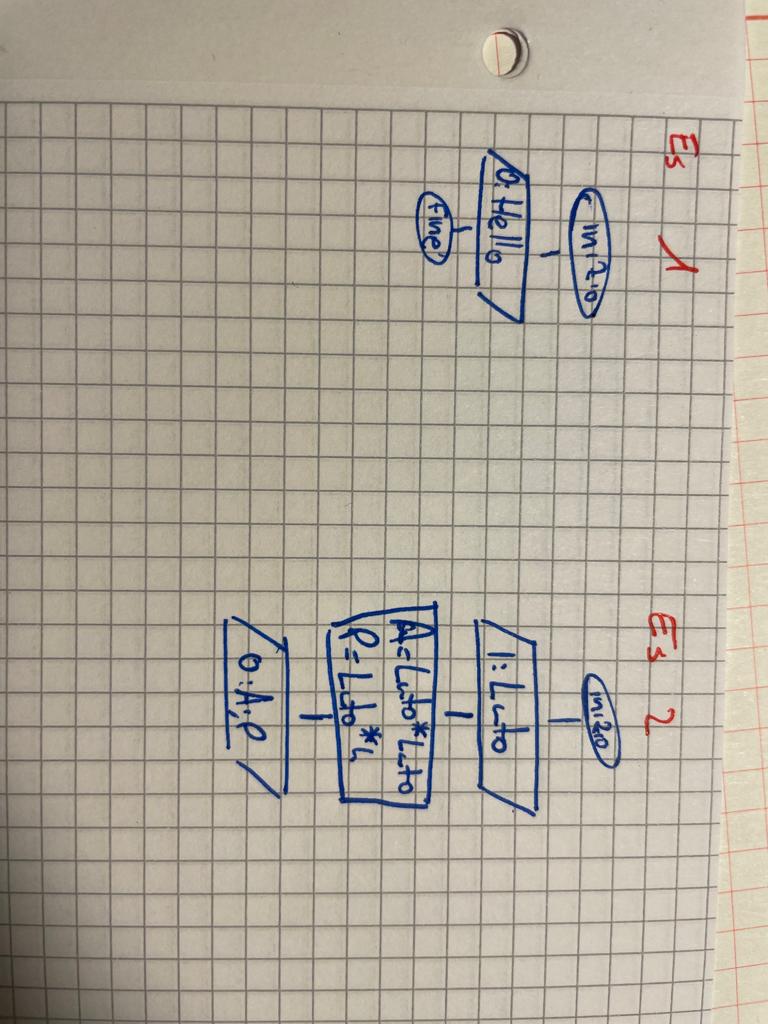 Es 1
inizio
O: Hello
Fine
Es 2
inizio
I: Lato
A= Lato * Lato
P= Lato * 4
O: A; P